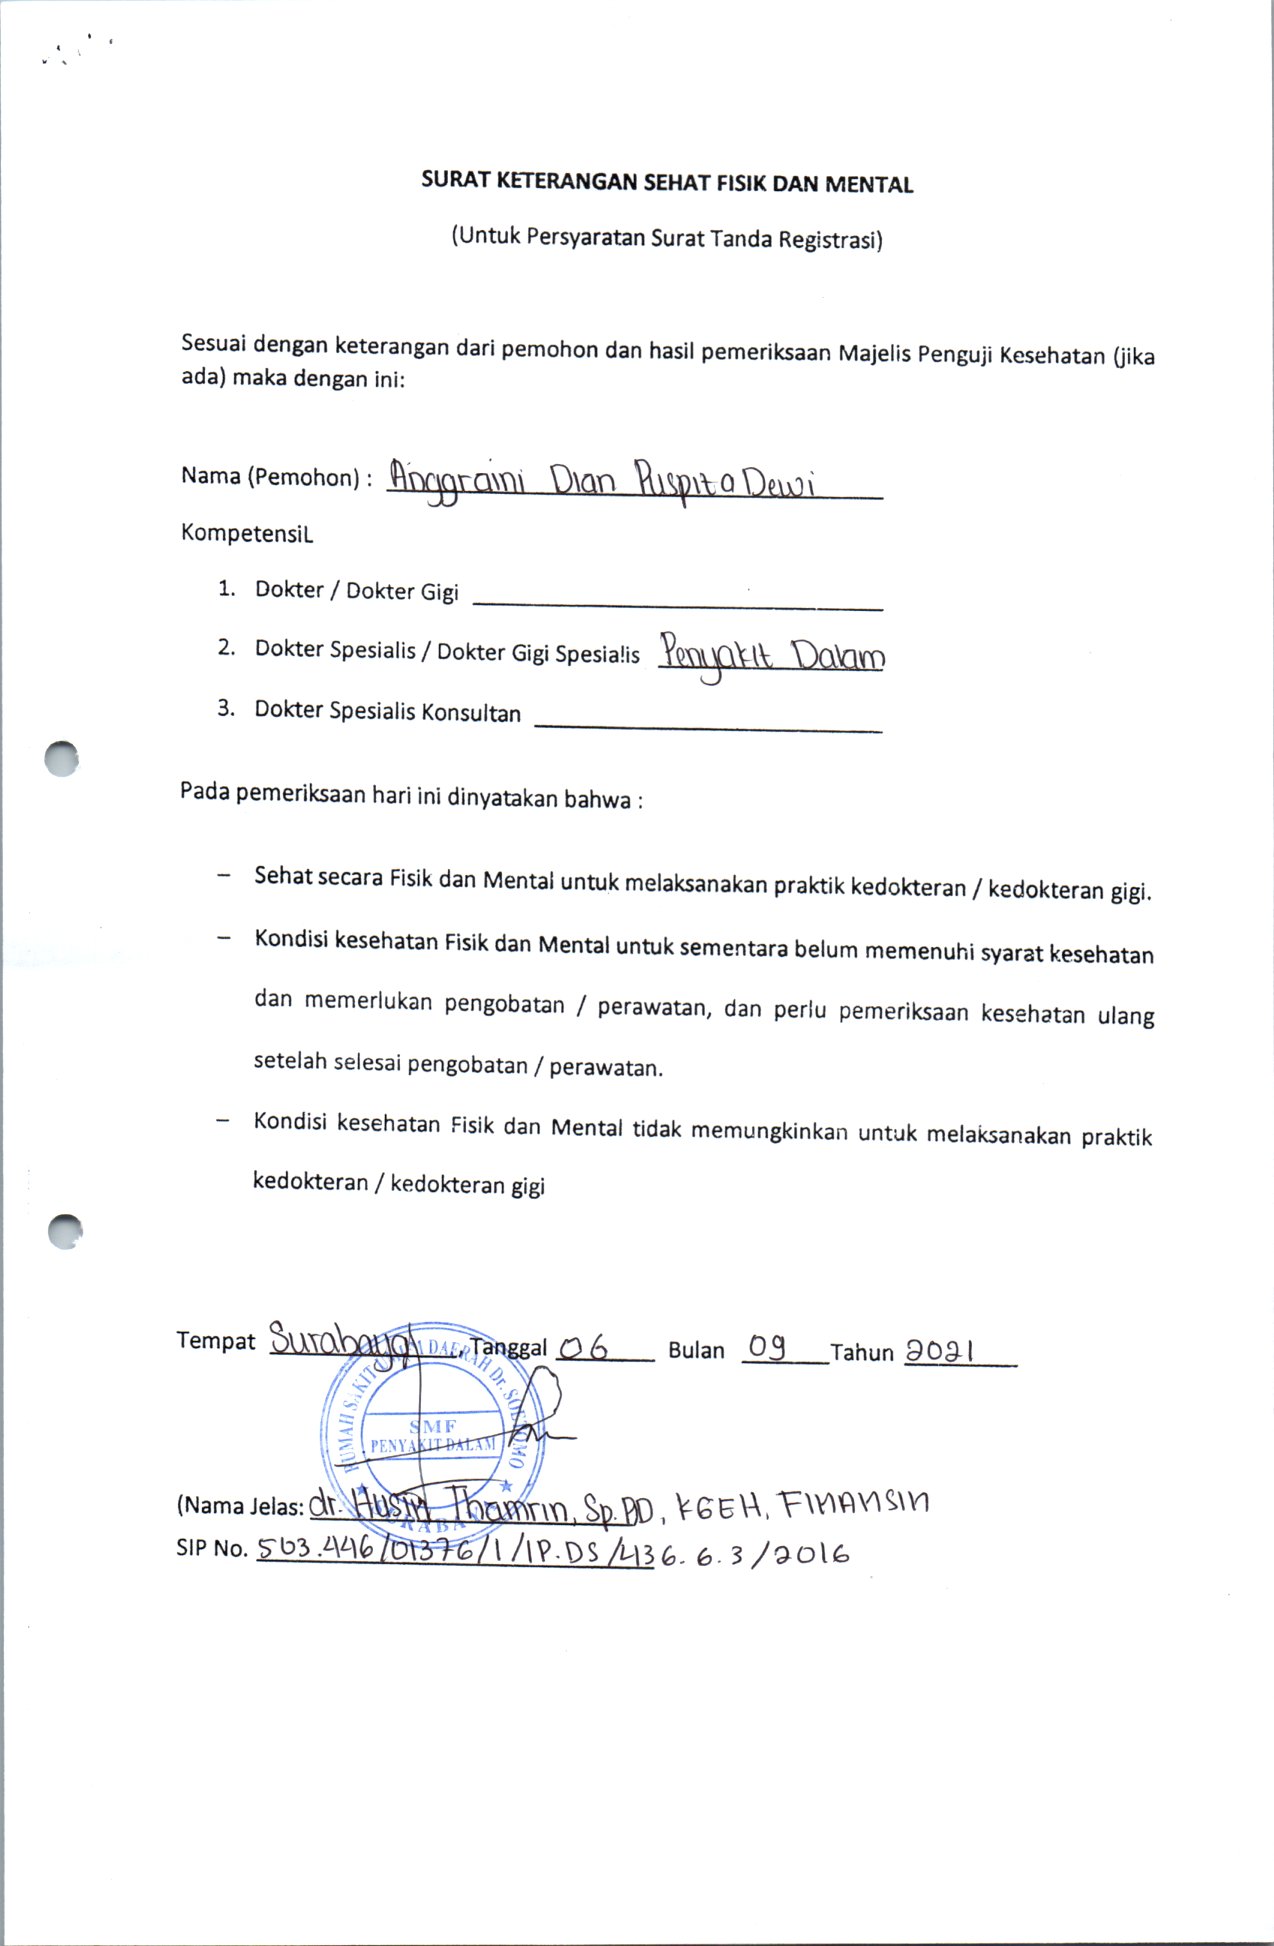 SURAT KETERANGAN SEHAT FISIK DAN MENTAL
(Untuk Persyaratan Surat Tanda Registrasi)
Sesuai dengan keterangan dari pemohon dan hasil pemeriksaan Majelis Penguji Kesehatan (jika
ada) maka dengan ini:
Nama (Pemohon) : Anggraini Dian Puspita Dewi
KompetensiL
1. Dokter / Dokter Gigi
2. Dokter Spesialis / Dokter Gigi Spesialis Penyakit Dalam
3. Dokter Spesialis Konsultan
Pada pemeriksaan hari ini dinyatakan bahwa :
– Sehat secara Fisik dan Mental untuk melaksanakan praktik kedokteran / kedokteran gigi.
– Kondisi kesehatan Fisik dan Mental untuk sementara belum memenuhi syarat kesehatan
dan memerlukan pengobatan / perawatan, dan perlu pemeriksaan kesehatan ulang
setelah selesai pengobatan / perawatan.
– Kondisi kesehatan Fisik dan Mental tidak memungkinkan untuk melaksanakan praktik
kedokteran / kedokteran gigi
Tempat Surabaya, Tanggal 06 Bulan 09 Tahun 2021
RUMAH SAKIT UMUM DAERAH Dr. SOETOMO
SMF
PENYAKIT DALAM
SURABAYA
(Nama Jelas: dr. Husin Thamrin, Sp.PD, KGEH, FINANSIN
SIP No. 503.446/01376/1/IP.DS/436.6.3/2016